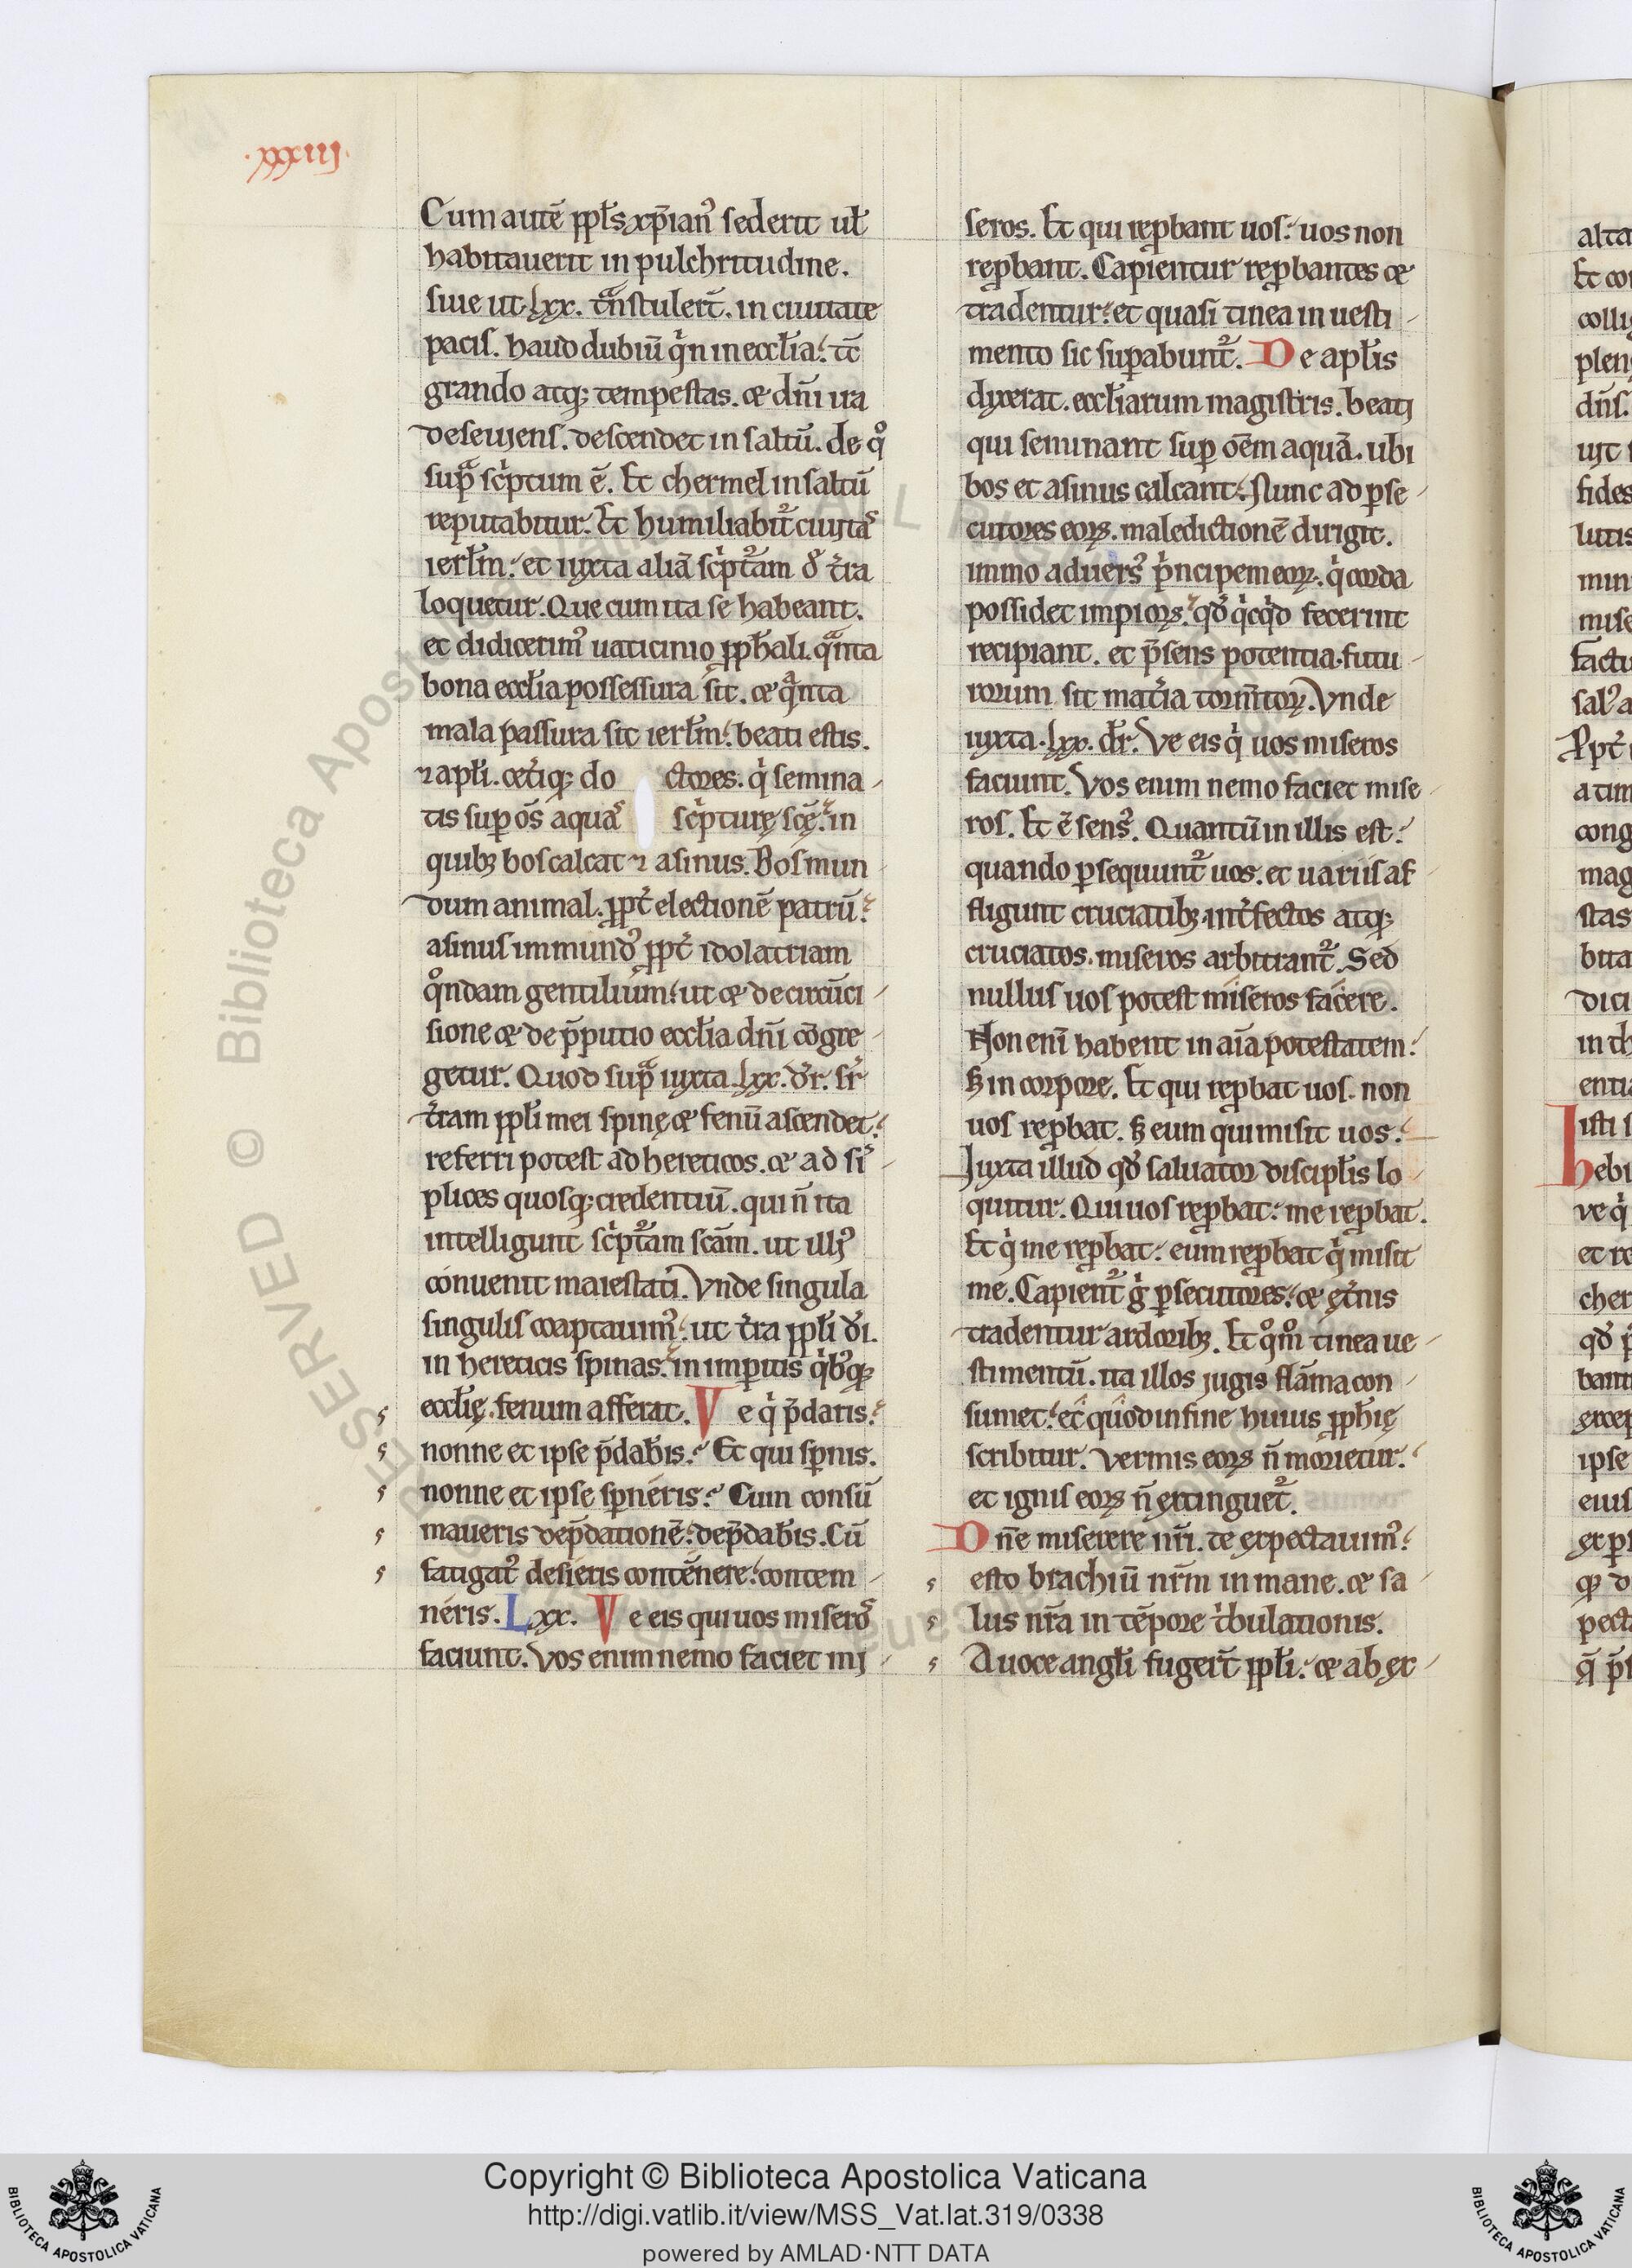 ·xxxiij·
Cum autē ppłs xp̄ian᾽ sederit uł
habitauerit in pulchritudine.
siue ut lxx. tᵃnstuler̄t. in ciuitate
pacis. haud dubiū qⁱn in eccłia. tc̄
grando atq; tempestas. & dn̄i ira
deseuiens. descendet in saltū. de qº
supᵃ scⁱptum ē. Et chermel in saltū
reputabitur. Et humiliabit᷑ ciuitas
ierłm. et iuxta aliā scⁱpt᷑am d᷑ tr̄ra
loquetur. Que cum ita se habeant.
et didicerim᾽ uaticinio ꝓpħali. qᵃnta
bona eccłia possessura sit. & qᵃnta
mala passura sit ierłm. beati estis.
⁊ apłi. cet̄iq; do ctores. qⁱ semina
tis suꝑ om̄s aquas scⁱpturę scę̄. in
quibꝫ bos calcat ⁊ asinus. Bos mun
dum animal. ꝓpt̄ electionē patrū.
asinus immund᾽ ꝓpt̄ idolatriam
qºndam gentilium. ut & de circūci
sione & de p̄putio eccłia dn̄i cōgre
getur. Quod supᵃ iuxta lxx. dr̄. sr̄
tr̄am ppłi mei spinę & fenū ascendet.
referri potest ad hereticos. & ad sī
plices quosq; credentiū. qui n̄ ita
intelligunt scⁱpt᷑am scām. ut illi᾽
conuenit maiestati. Vnde singula
singulis coaptauim᾽. ut tr̄ra ppłi di.
in hereticis spinas. in imꝑitis qⁱb᾽q;
eccłię. fenum afferat. Ve qⁱ p̄daris.
nonne et ipse p̄daƀis. Et qui sꝑnis.
nonne et ipse sꝑneris. Cum consū
maueris dep̄dationē. dep̄daƀis. Cū
fatigat᾽ desieris contēnere. contem
neris. Lxx. Ve eis qui uos miseros
faciunt. Vos enim nemo faciet mi
seros. Et qui reꝓbant uos. uos non
reꝓbant. Capientur reꝓbantes &
tradentur. et quasi tinea in uesti
mento sic suꝑabunt᷑. De apłis
dixerat. eccłiarum magistris. beati
qui seminant suꝑ oēm aquā. ubi
bos et asinus calcant. Nunc ad ꝑse
cutores eoꝝ. maledictionē dirigit.
immo aduers᾽ pⁱncipem eoꝝ. qⁱ corda
possidet impioꝝ. qd̄ qⁱcqⁱd fecerint
recipiant. et p̄sens potentia. futu
rorum sit mat̄ia torm̄toꝝ. Vnde
iuxta. lxx. dr̄. Ve eis qⁱ uos miseros
faciunt. Vos enim nemo faciet mise
ros. Et ē sens᾽. Quantū in illis est.
quando ꝑsequunt᷑ uos. et uariis af
fligunt cruciatibꝫ. int̄fectos atq;
cruciatos. miseros arbitrant᷑. Sed
nullus uos potest miseros facere.
Non eni habent in aīa potestatem.
sꝫ in corpore. Et qui reꝓbat uos. non
uos reꝓbat. sꝫ eum qui misit uos.
Iuxta illud qd̄ saluator discipłis lo
quitur. Qui uos reꝓbat. me reꝓbat.
Et qⁱ me reꝓbat. eum reꝓbat qⁱ misit
me. Capient᷑ gⁱ ꝑsecutores. & ęt̄nis
tradentur ardoribꝫ. Et qºmº tinea ue
stimentū. ita illos iugis flāma con
sumet. et quod in fine huius ꝓpħię
scribitur. Vermis eoꝝ n̄ morietur.
et ignis eoꝝ n̄ extinguet᷑.
Dn̄e miserere nr̄i. te expectauim᾽.
esto brachiū nr̄m in mane. & sa
lus nr̄a in tēpore tⁱbulationis.
A uoce angłi fuger̄t ppłi. & ab ex
Copyright © Biblioteca Apostolica Vaticana
http://digi.vatlib.it/view/MSS_Vat.lat.319/0338
powered by AMLAD·NTT DATA